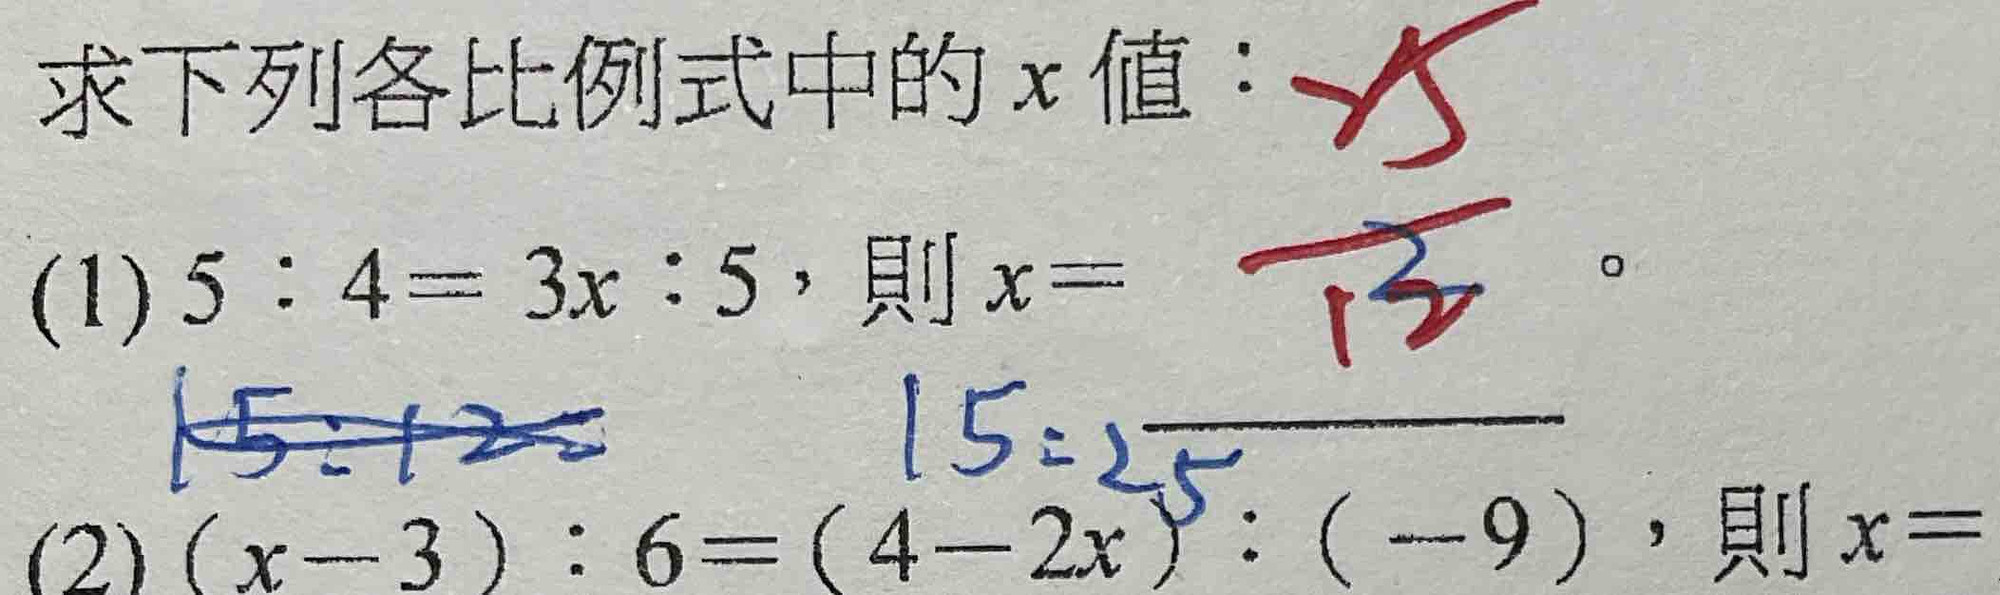 求下列各比例式中的 x 值：
25
(1) 5：4＝ 3x：5，則 x＝ 12 。
15：12＝ 15：25
(2)（x－3）：6＝（4－2x）：（－9），則 x＝